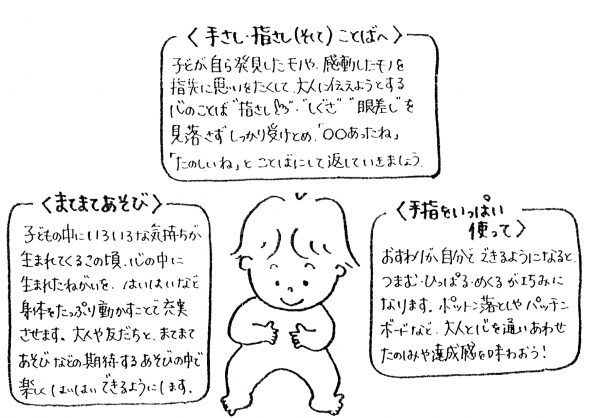 〈手さし・指さし(そして)ことばへ〉
子どが自ら発見したモノや、感動したモノを
指先に思いをたくして、大人に伝えようとする
心のことば"指さし"・"しぐさ""眼差し"を
見落さずしっかり受けとめ、「〇〇あったね」
「たのしいね」とことばにして返していきましょう.
〈まてまてあそび〉
子どもの中にいろいろな気持ちが
生まれてくるこの頃、心の中に
生まれたねがいを、はいはいなど
身体をたっぷり動かすことで充実
させます。大人や友だちと、まてまて
あそびなどの期待するあそびの中で
楽しくはいはいできるようにします。
〈手指をいっぱい
使って〉
おすわりが自分でできるようになると、
つまむ・ひっぱる・めくるが巧みに
なります。ポットン落としやパッチン
ボードなど、大人と心を通いあわせ
たのしみや達成感を味わおう!